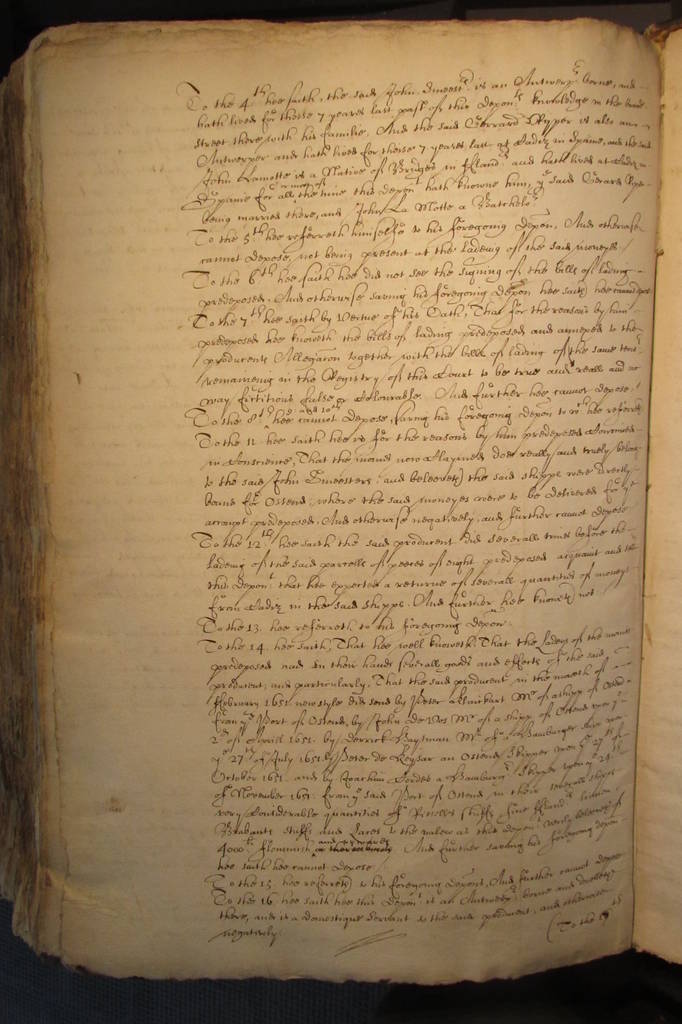 To the 4th hee saith, the said John Smeesters is an Antwerper borne, and
hath lived for these 7 yeares last past of this deponts knowledge in the
street there with his familie. And the said Gerrard Skyper is also an
Antwerper and hath lived for these 7 yeares last at Cadiz in Spaine, and the said
John Lamotte is a Native of Bridges in Fland:rs and hath lived at Cadiz in
Spaine for all the time this depont hath knowne him, ye said Gerard
being married there, and John La Motte a Batchelor
To the 5th hee referreth himselfe to his foregoing depon, And otherwise
cannot depose, not being present at the ladeing of the said moneyes
To the 6th hee saith hee did not see the signing of the bills of lading
predeposed, And otherwise saving his foregoing depon hee saith hee cannot depose
To the 7th hee saith by vertue of his Oath, That for the reasons by him
predeposed hee knoweth the bills of lading predeposed and annexed to the
producents Allegation together with the bills of lading of the same tenr
remaineing in the Registry of this Court to be true and reall and no
way fictitious false or Colourable. And further hee cannot depose.
To the 8th 9th and 10th hee cannot depose, saving his foregoing depon to wch hee referreth
To the 11 hee saith hee is for the reasons by him predeposed Convinced
in Conscience, That the monies now Claymed doe really and truely belong
to the said John Smeesters, and beleeveth the said shipps were directly
bound for Ostend, where the said moneyes were to be delivered for ye
accompt predeposed. And otherwise negatively, and further cannot depose
To the 12th hee saith the said producent did severall times before the
ladeing of the said parcells of peeces of eight predeposed acquaint and tell
this depont that hee expected a returne of severall quantities of moneyes
from Cadiz in the said shipps. And further hee knoweth not.
To the 13. hee referreth to his foregoing depon.
To the 14. hee saith, That hee well knoweth That the laders of the monies
predeposed had in their hands severall goods and effects of the said
producent, and particularly, That the said producent in the moneth of
February 1651 new style did send by Peter Mr of a shipp of Ostend
from ye Port of Ostend, by John De Vos Mr of a shipp of Ostend upon ye
2th of Aprill 1651. by Derrick Mr of a Hamburger shipp upon
ye 27th of July 1651 by Peter de Keysar an Ostend Skipper upon ye 27th of
October 1651. and by Joachim a Hamburgr Skipper upon ye 24th
of November 1651. from ye said Port of Ostend in their severall shipps
very Considerable quantities of stuffs fine Flandrs linnen
Brabants stuffs and Laces to the value as this depont verily beleeveth of
4000li Flemmish and upwards. And further saving his foregoing depon
hee saith hee cannot depose
To the 15. hee referreth to his foregoing depont, And further cannot depose
To the 16. hee saith hee this Depont is an Antwerper borne and dwelleth
there, and is a domestique servant to the said producent, and otherwise
negatively.
(To the